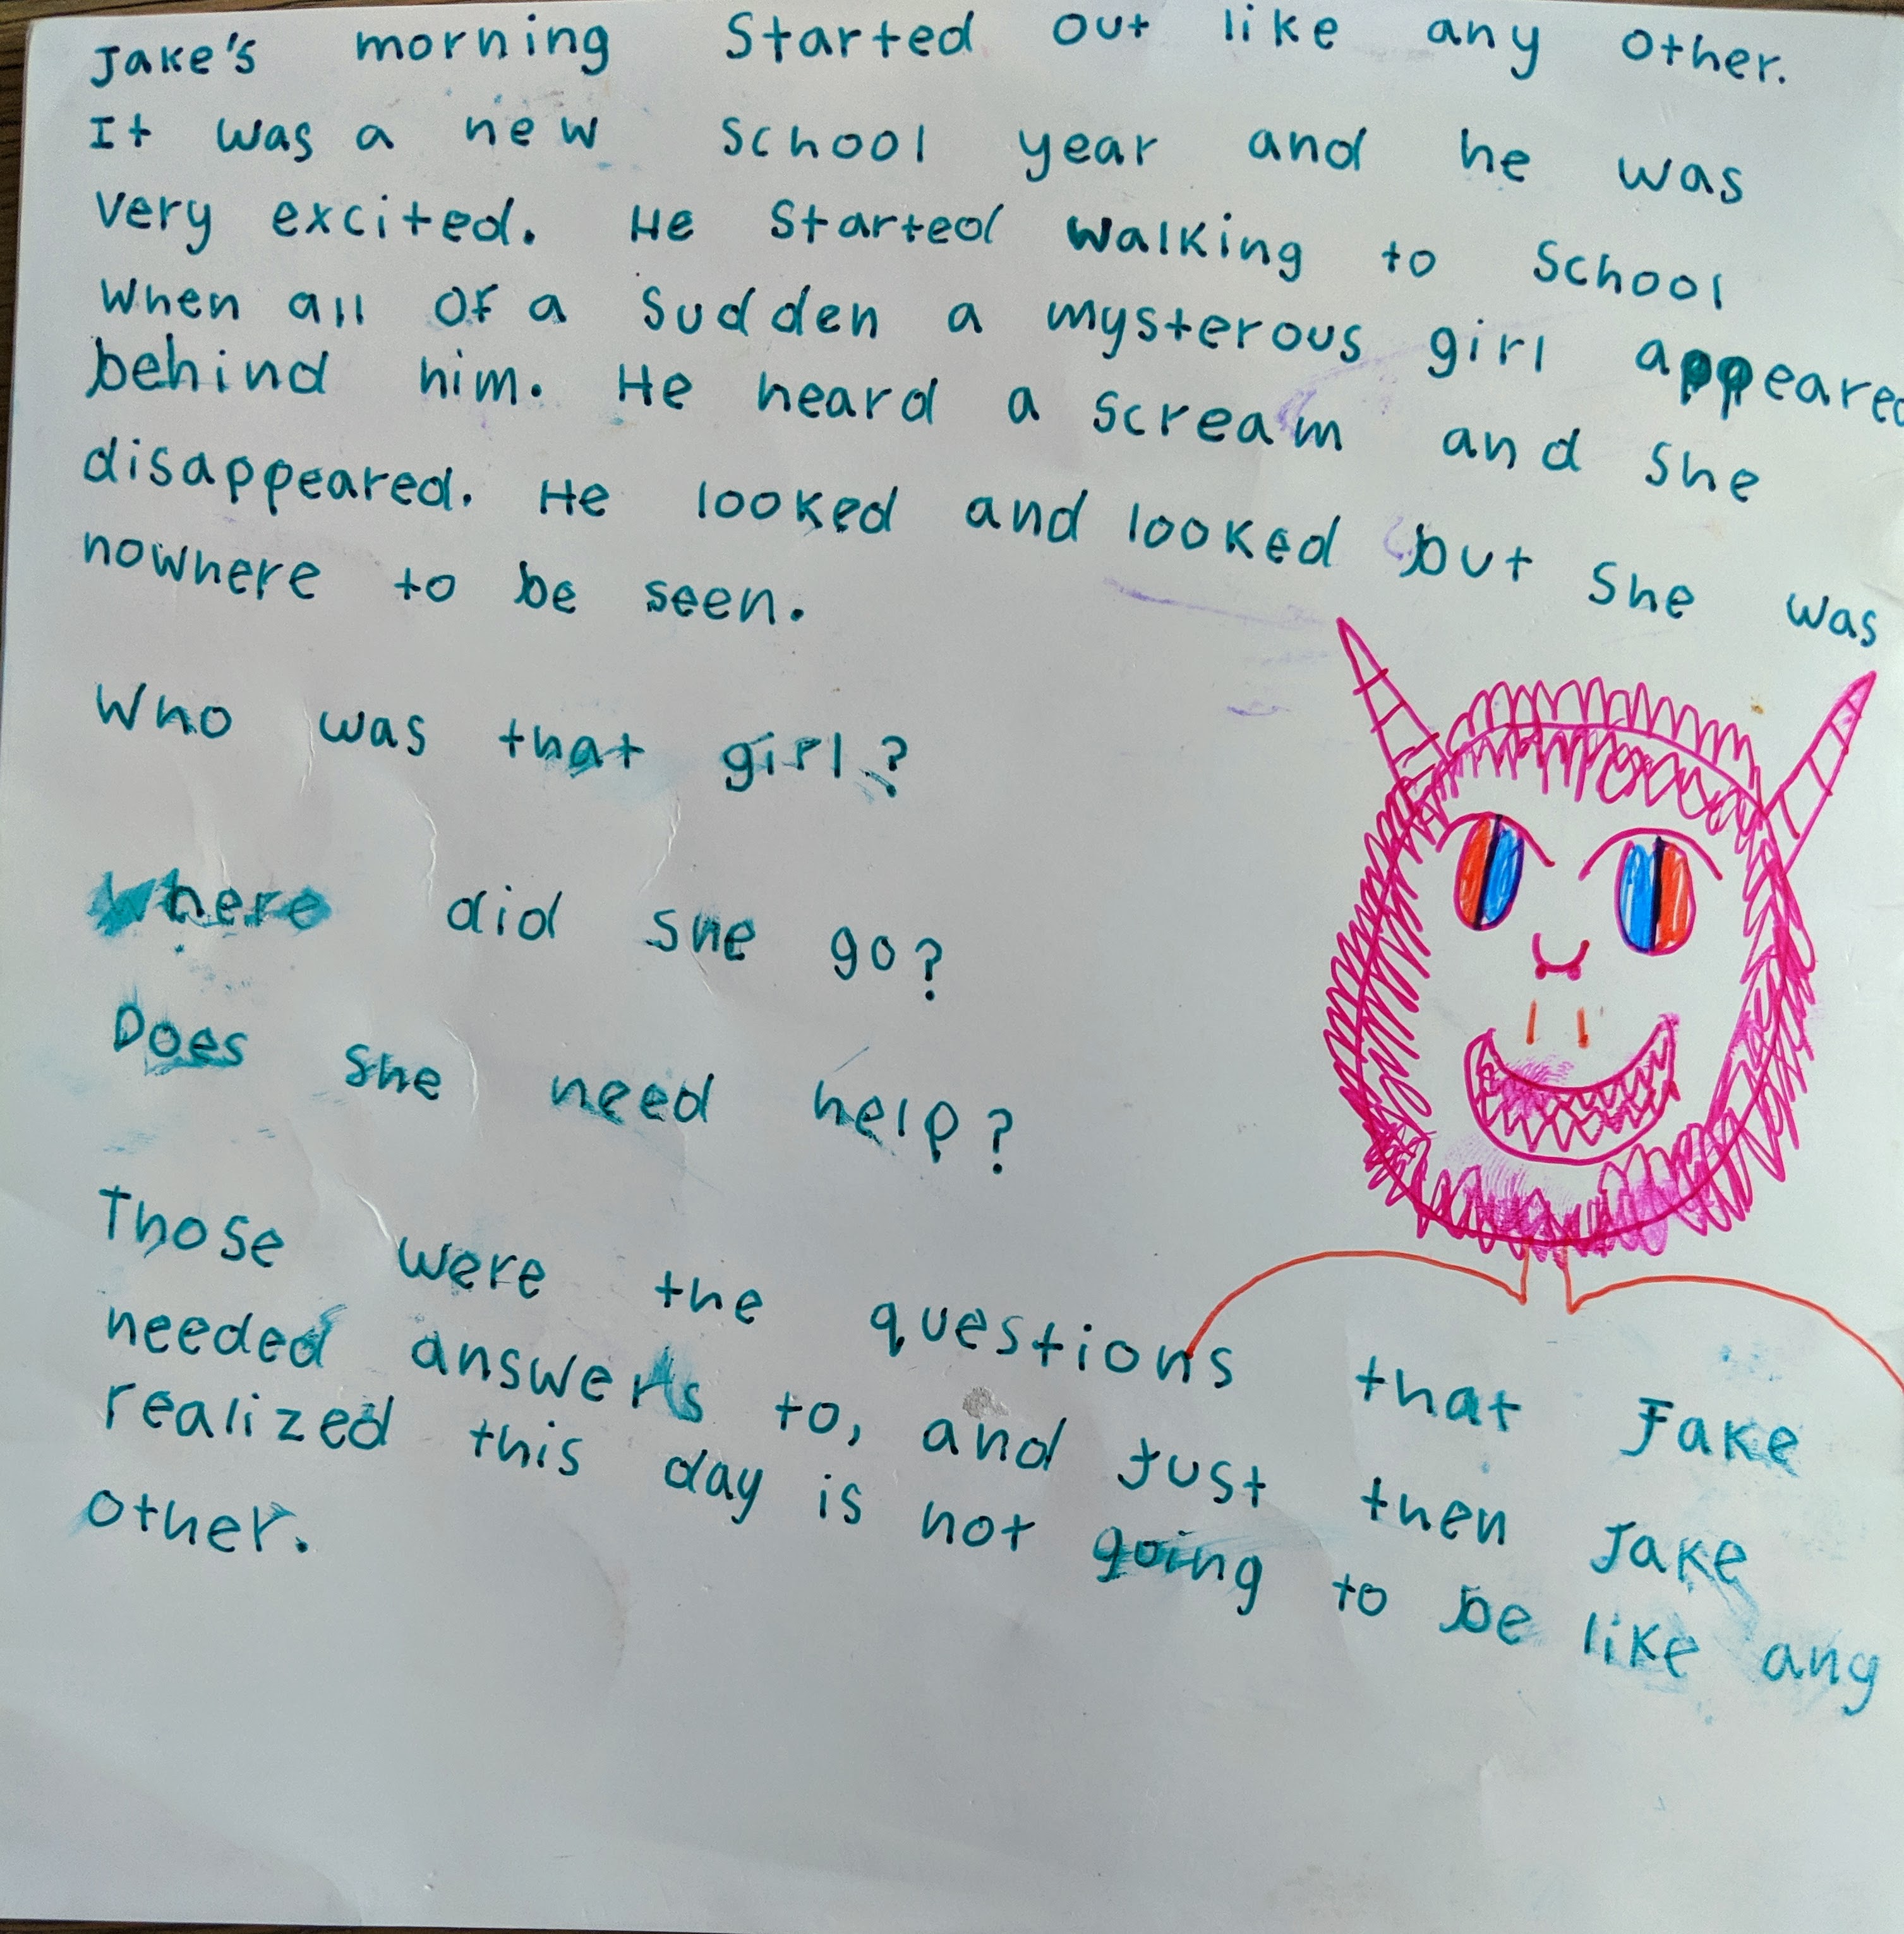 Jake's morning Started out like any other.
It was a new school year and he was
very excited. He started walking to school
When all of a sudden a mysterous girl appeared
behind him. He heard a scream and she
disappeared. He looked and looked but she was
nowhere to be seen.
Who was that girl?
Where did she go?
Does she need help?
Those were the questions that Jake
needed answers to, and just then Jake
realized this day is not going to be like any
other.